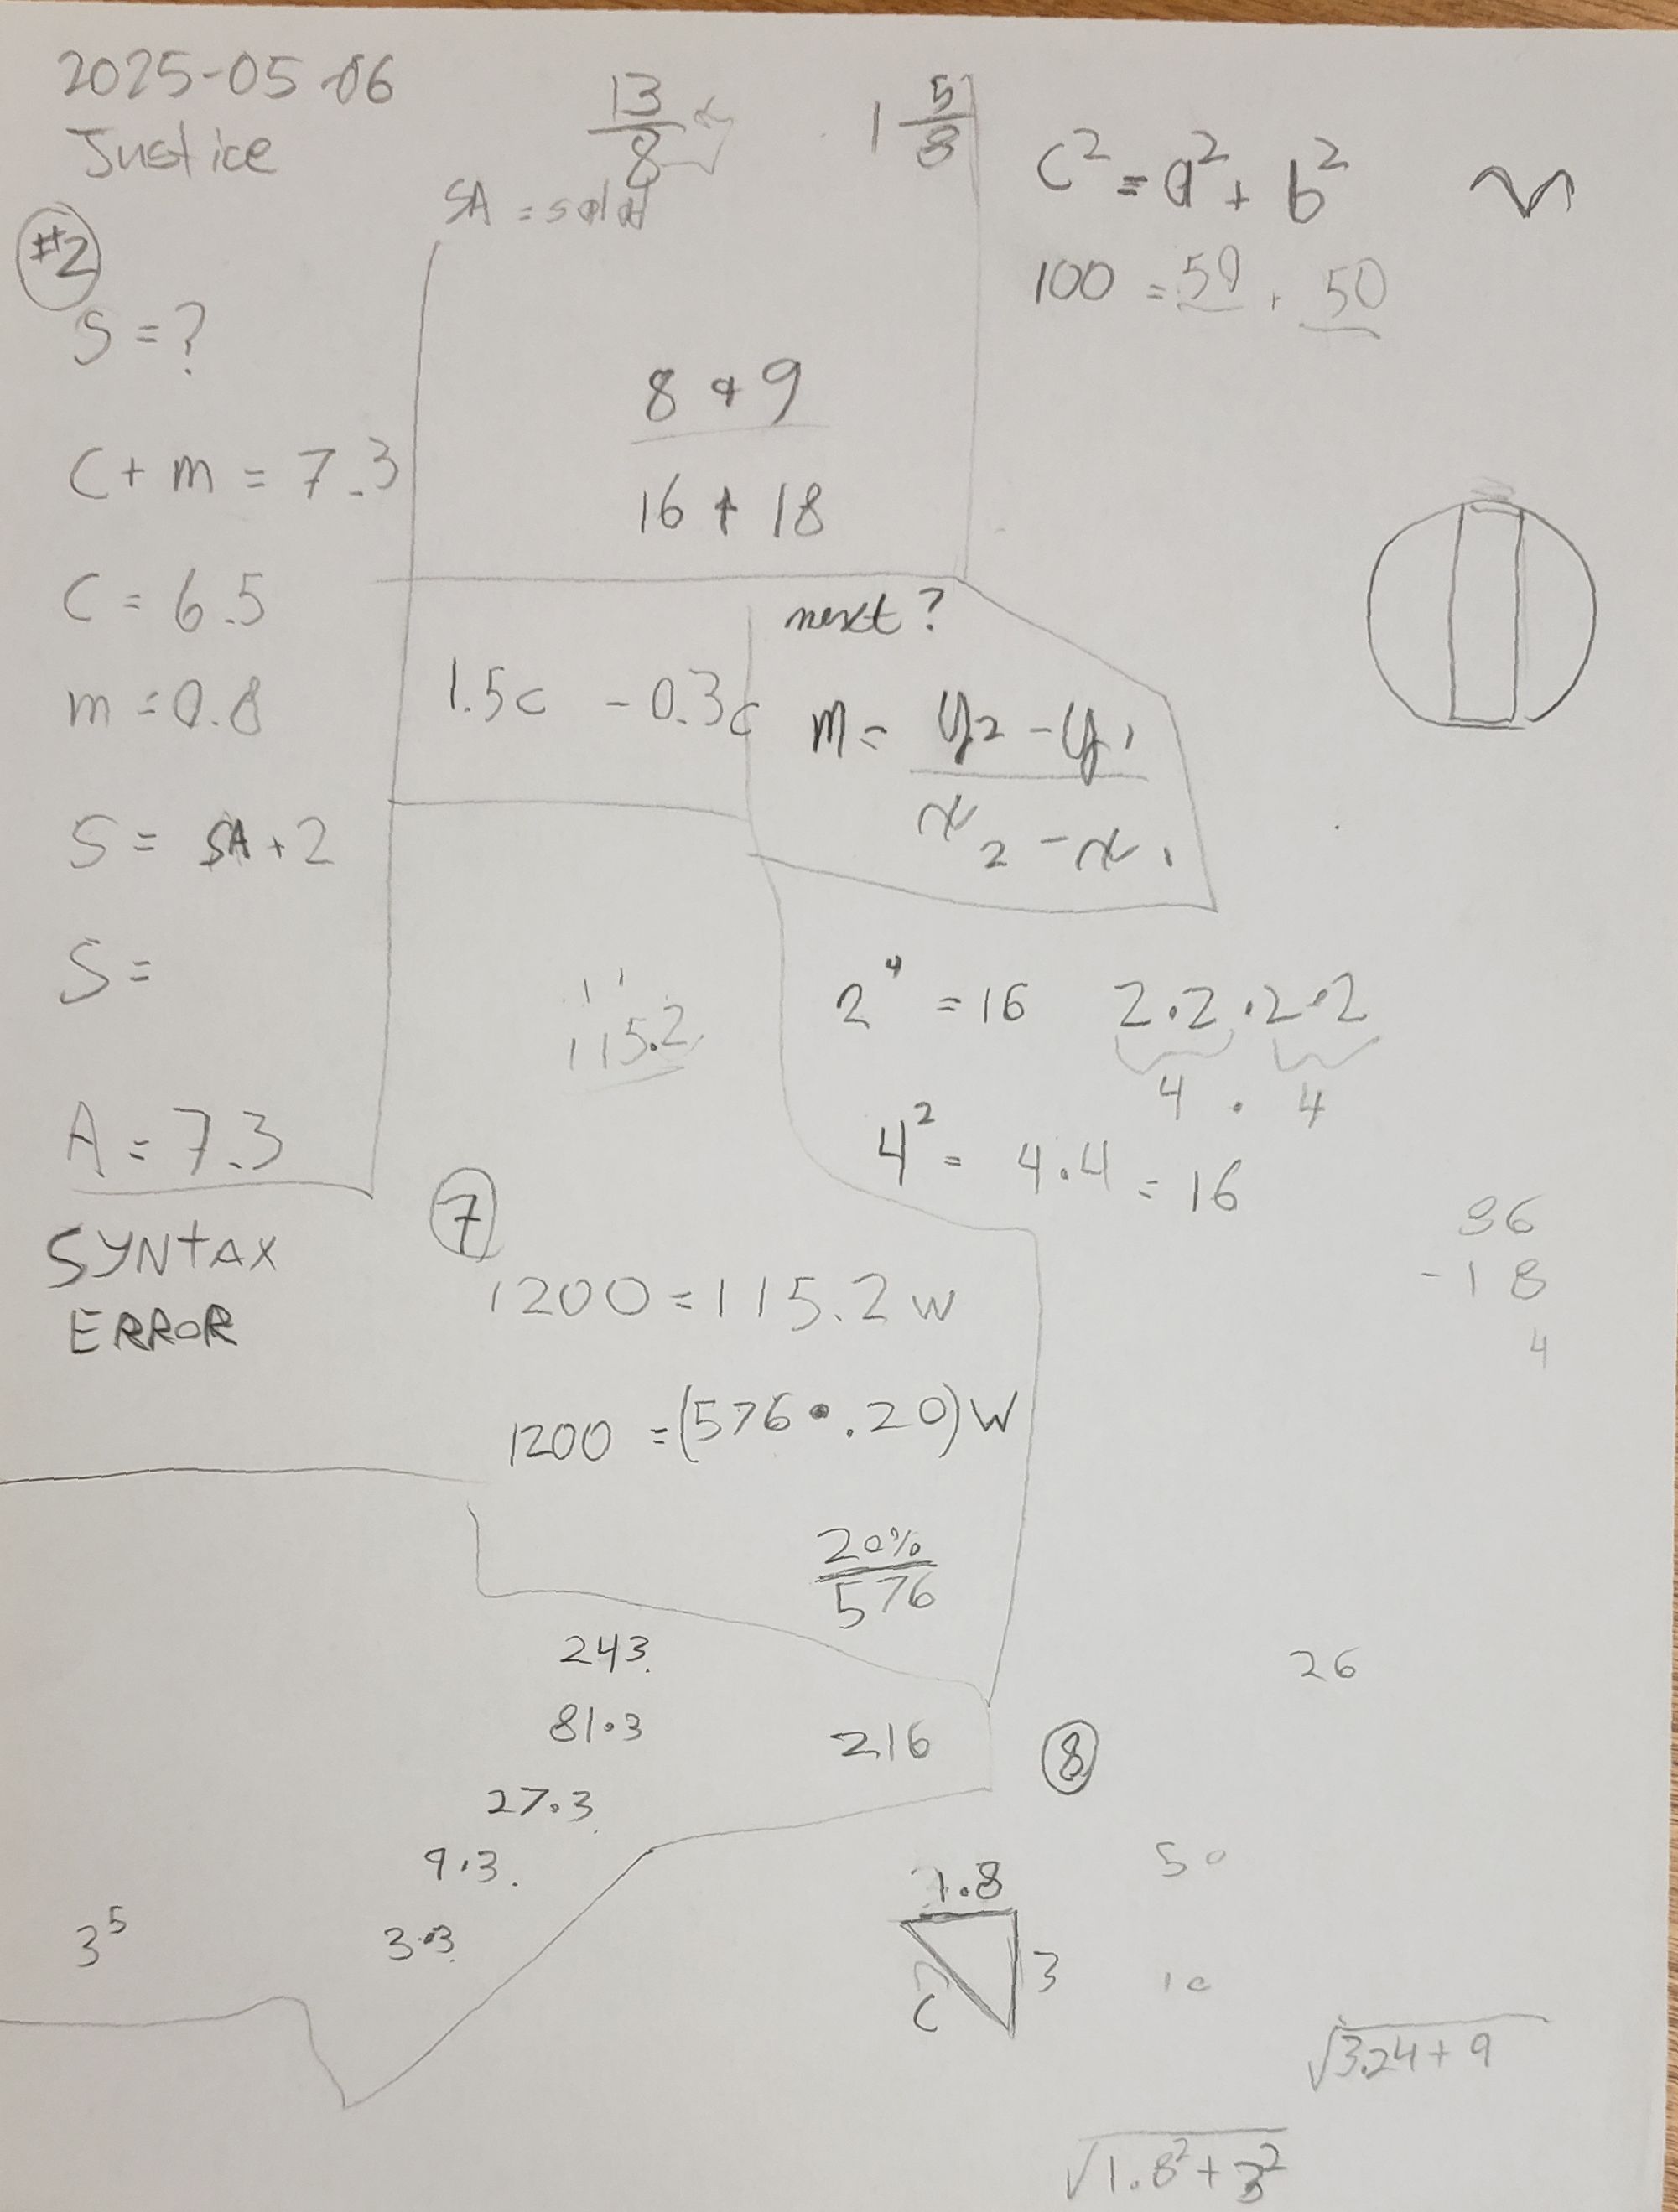 2025-05-06
Justice
13/8
1 5/8
SA = sold
#2
S = ?
C + m = 7.3
C = 6.5
m = 0.8
S = SA + 2
S =
A = 7.3
SYNTAX
ERROR
8 + 9
16 + 18
c² = a² + b²
100 = 50 + 50
1.5c - 0.3c
next?
m = y₂ - y₁
x₂ - x₁
115.2
2⁴ = 16 2·2·2·2
4 · 4
4² = 4·4 = 16
36
- 18
4
7
1200 = 115.2w
1200 = (576 • .20)W
20%
576
243
81·3
27·3
9·3
3·3
3⁵
216
26
8
50
10
1.8
3
c
√3.24 + 9
√1.8² + 3²